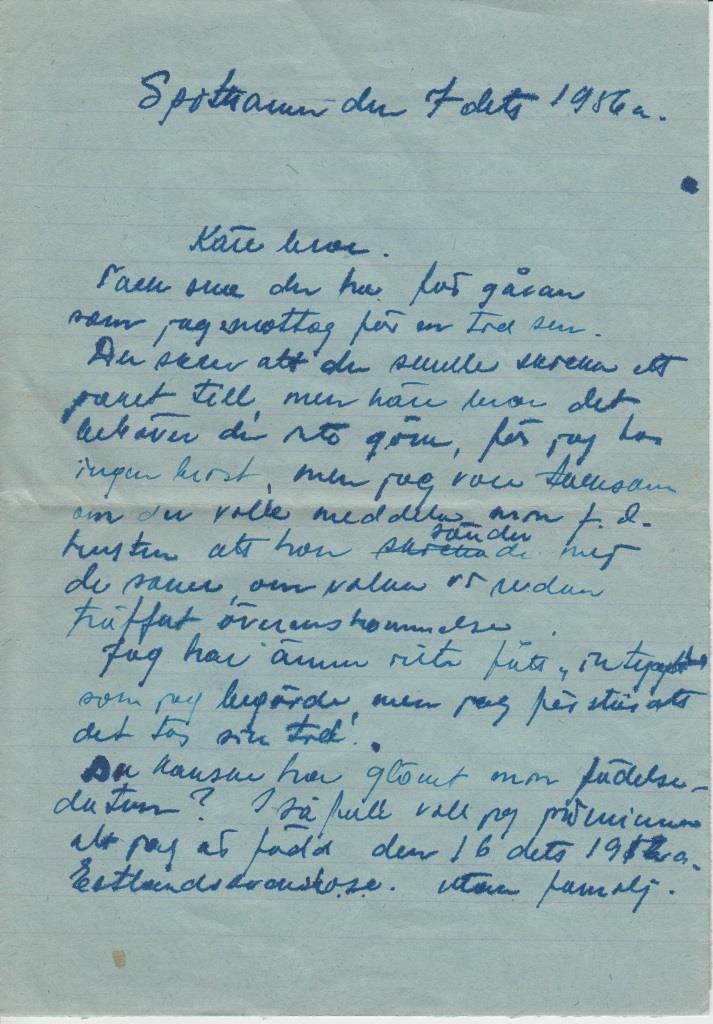 Spithamn den 7 dets 1986 a.
Käre bror.
Tack ska du ha för gåvan
som jag mottog för en tid sen.
Du skrev att du skulle skicka ett
paket till, men käre bror det
behöver du inte göra, för jag har
ingen brist, men jag vore tacksam
om du ville meddela min f.d.
hustru att hon sänder mig
de saker, om vilka vi redan
träffat överenskommelse
Jag har ännu inte fått
som jag begärde, men jag förstår att
det tar sin tid.
Du kanske har glömt min födelse-
datum? I så fall vill jag påminna
att jag är född den 16 dets a.
Estlandssvensk. utan familj.